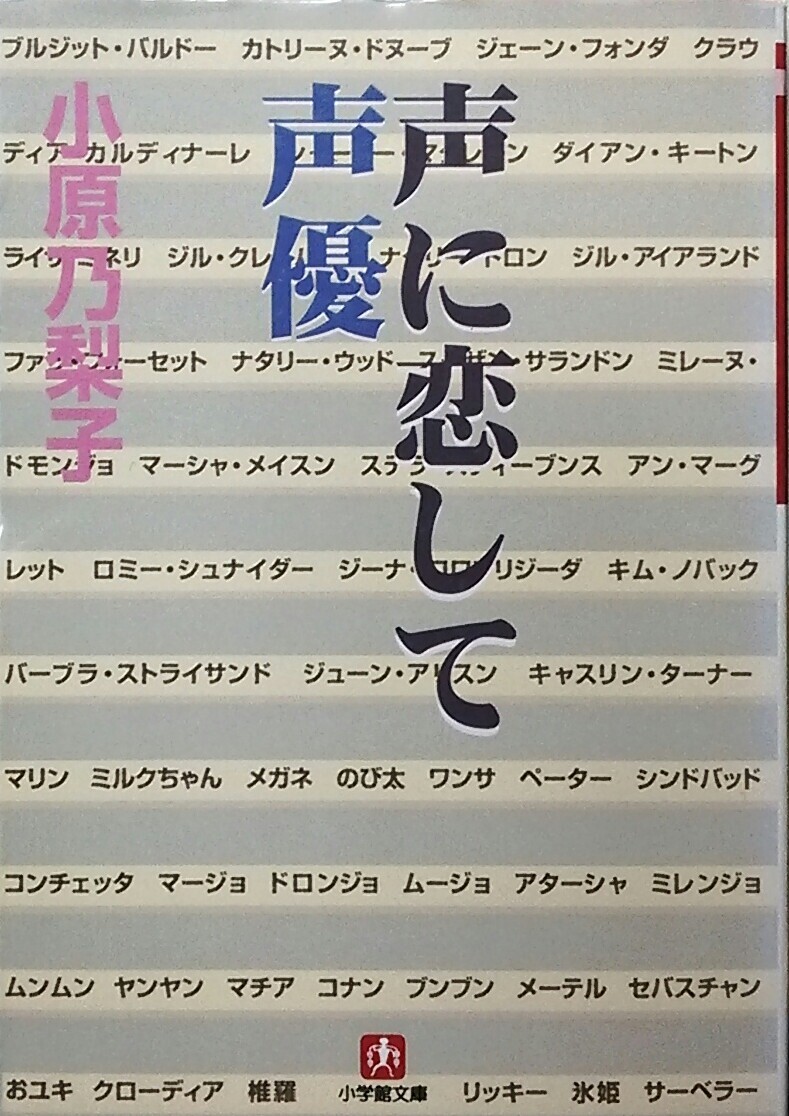 声に恋して
声優
小原乃梨子
ブルジット・バルドー カトリーヌ・ドヌーブ ジェーン・フォンダ クラウ
ディア カルディナーレ マクレーン ダイアン・キートン
ライザ ミネリ ジル ナタリー・ドロン ジル・アイアランド
ファラ・フォーセット ナタリー・ウッド スーザン・サランドン ミレーヌ・
ドモンジョ マーシャ・メイスン ステラ スティーブンス アン・マーグ
レット ロミー・シュナイダー ジーナ・ロロブリジーダ キム・ノバック
バーブラ・ストライサンド ジューン・アリスン キャスリン・ターナー
マリン ミルクちゃん メガネ のび太 ワンサ ペーター シンドバッド
コンチェッタ マージョ ドロンジョ ムージョ アターシャ ミレンジョ
ムンムン ヤンヤン マチア コナン ブンブン メーテル セバスチャン
おユキ クローディア 椎羅 リッキー 氷姫 サーベラー
小学館文庫